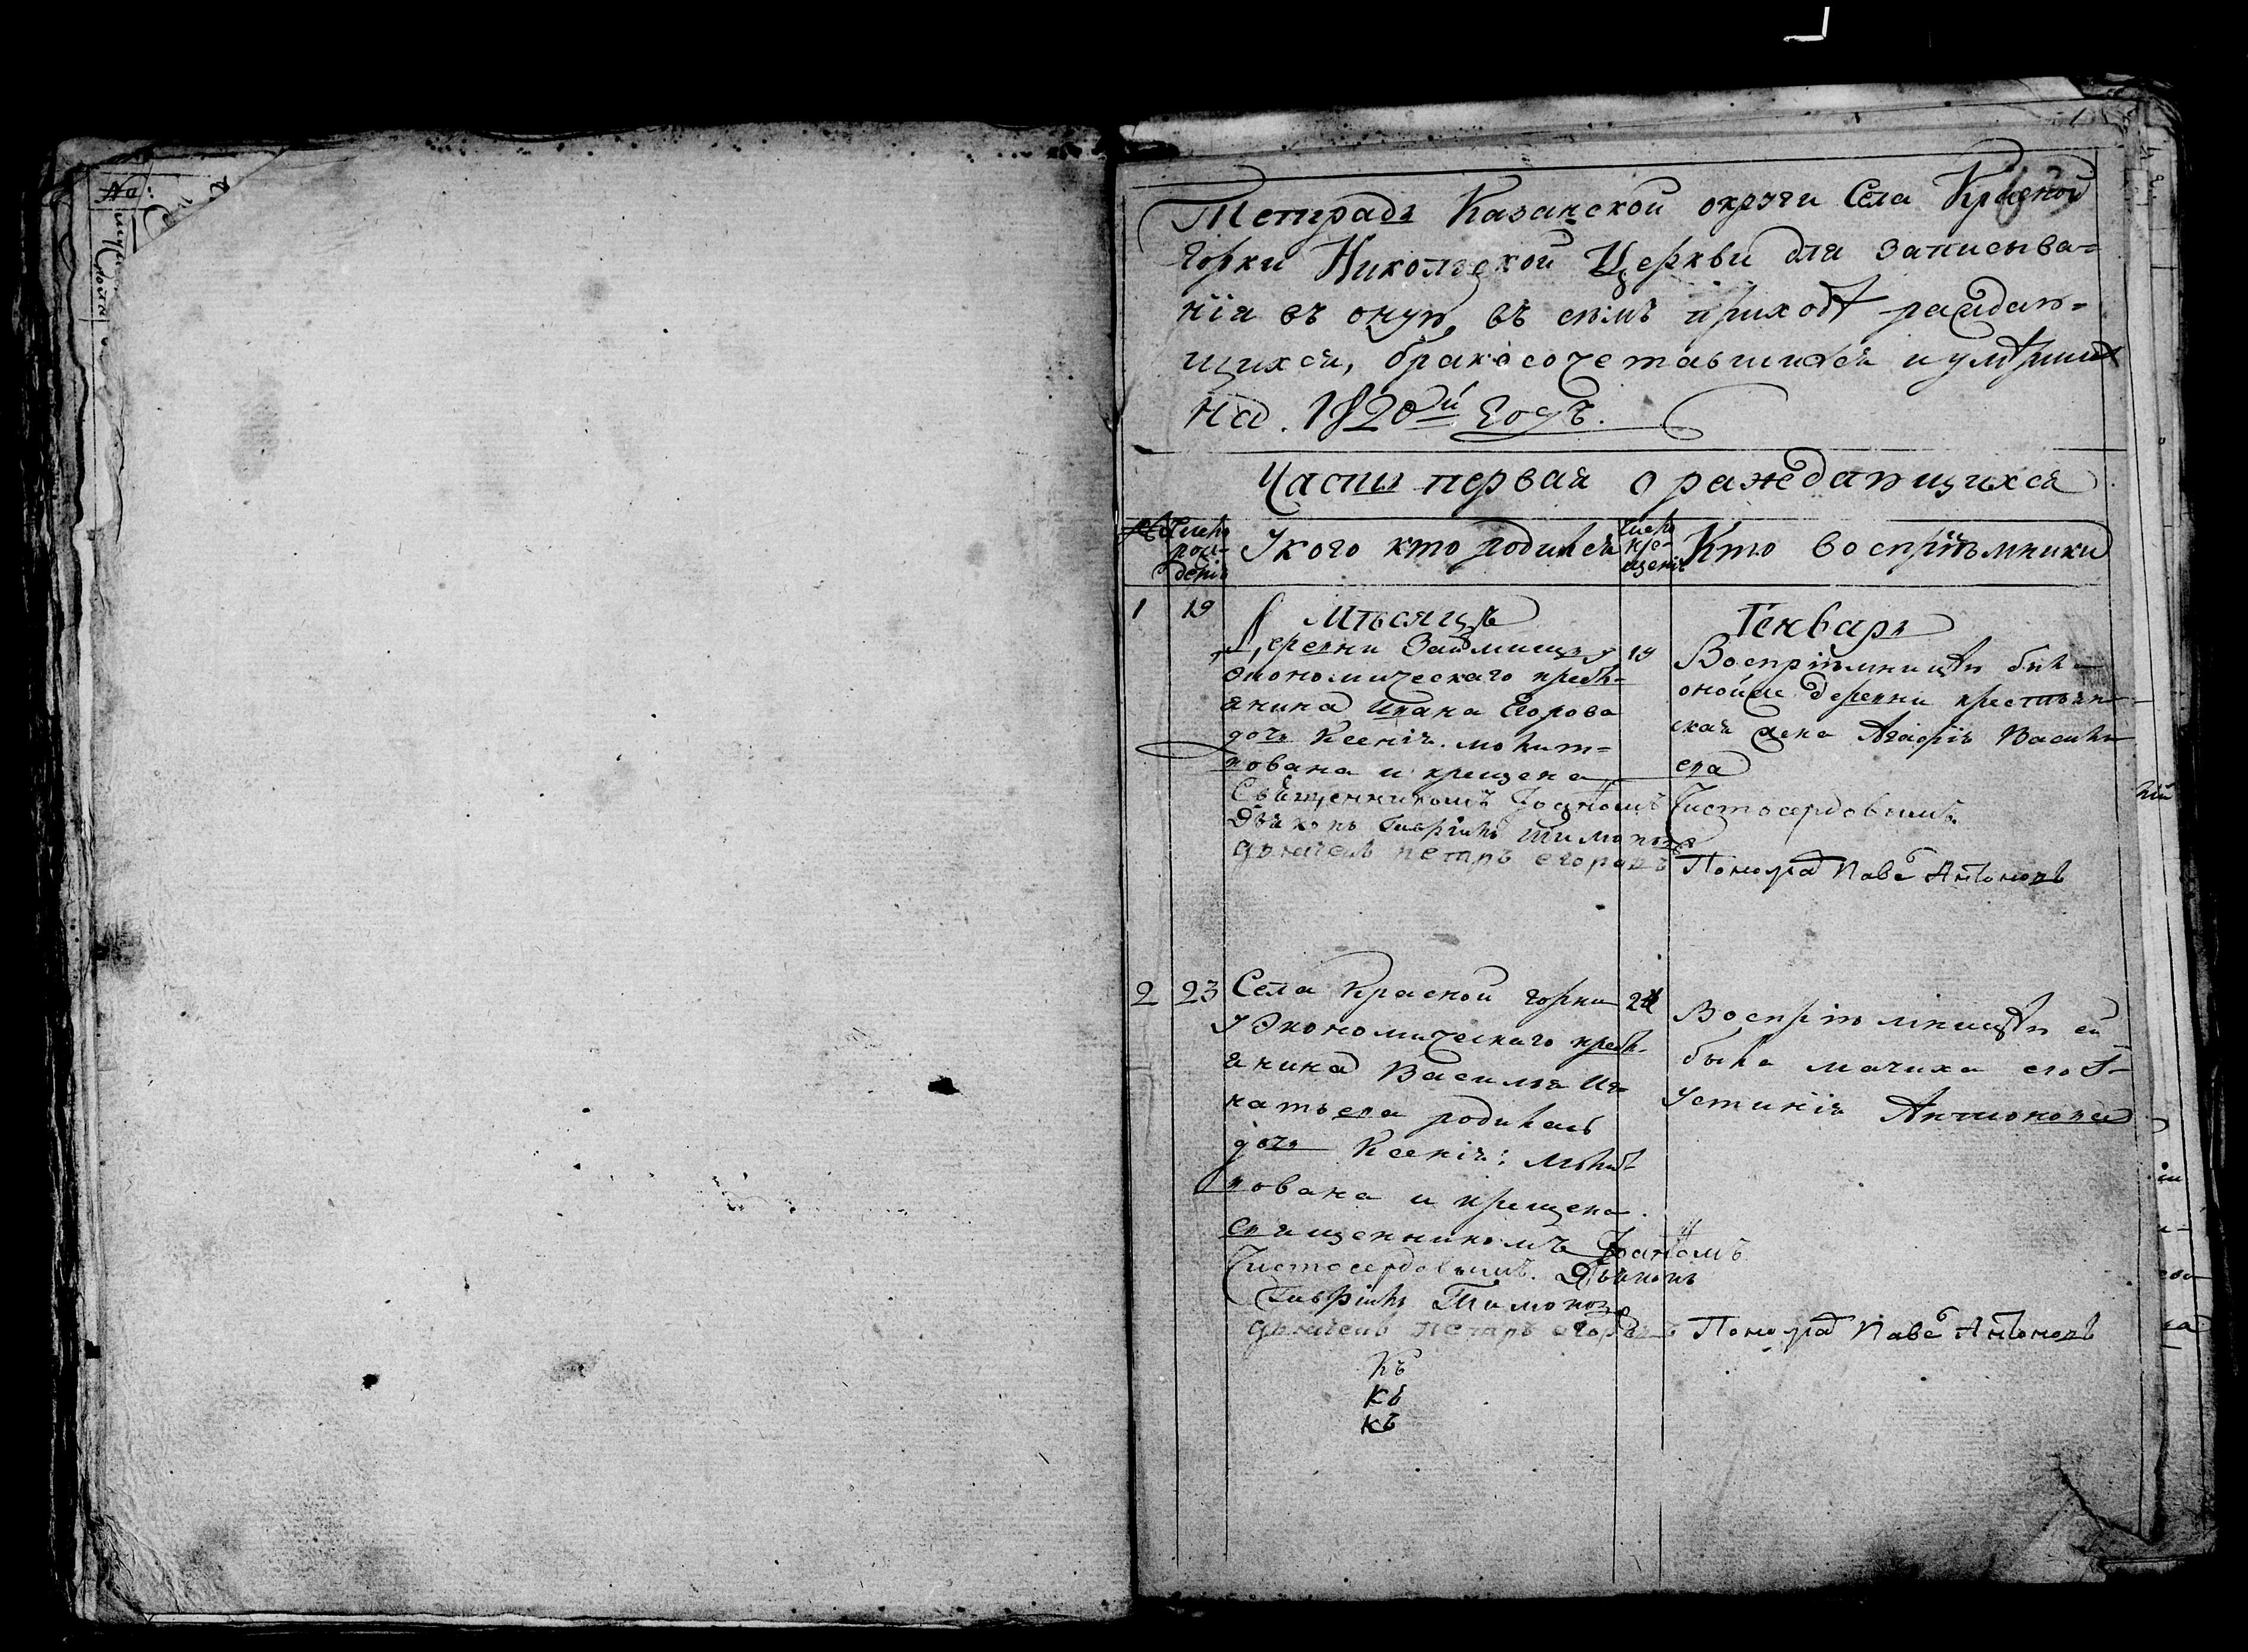 №:
1
Тетрадь Казанской округи Села Красной
Горки Никольской Церкви для записыва=
нія въ оную, въ семъ приходѣ раждаю=
щихся, бракосочетавшихся и умѣршихъ
на 1820й Годъ.
Часть первая о раждающихся
№ Число рож-денія У кого кто родился Число кре-щенія Кто воспріемники
Мѣсяцъ Генварь
1 19 Деревни Займищъ у
экономическаго кресть-
янина Ивана Егорова
дочь Ксенія. молит=
вована и крещена
Священникомъ Іоанномъ Чистосердовымъ.
Дьяконъ Гаврилъ Тимофеевъ
дьячекъ петръ егоровъ
19 Воспріемницею была
оной же деревни крестьян-
ская жена Агафія Василь-
ева
Пономарь Паве Антоновъ
2 23 Села Красной горки
у Экономическаго кресть-
янина Василья Иг-
натьева родилась
дочь Ксенія: молит-
вована и крещена.
священникомъ Іоанномъ
Чистосердовымъ. Дьяконъ
Гаврилъ
дьячекъ петръ егоровъ
24 Воспріемницею ей
была мачиха его
Устинія Антонова
Пономарь Паве Антоновъ
Къ
Къ
Къ